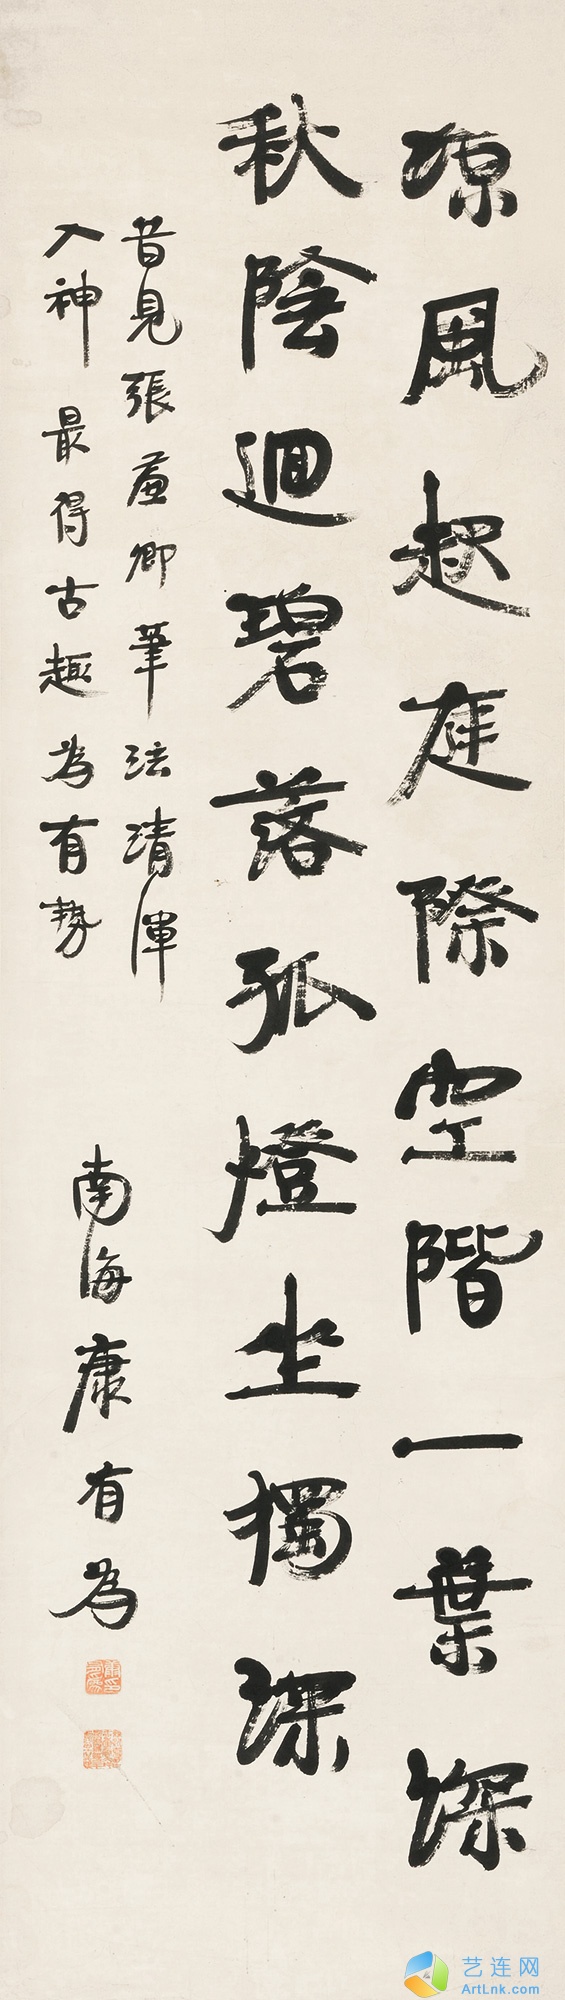 涼風起庭際空階一葉深
秋陰迴碧落孤燈坐獨深
昔見張廉卿筆法清渾
入神最得古趣為有勢
南海康有為
艺连网
ArtLnk.com